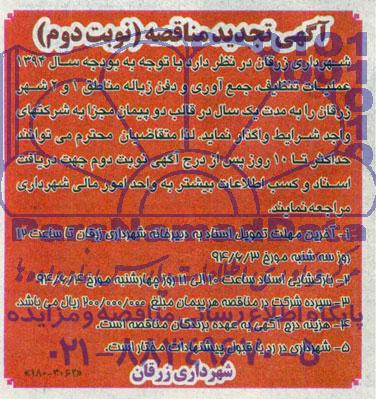 آگهی تجدید مناقصه (نوبت دوم)
شهرداری زرقان در نظر دارد با توجه به بودجه سال ۱۳۹۴
عملیات تنظیف، جمع آوری و دفن زباله مناطق ۱ و ۲ شهر
زرقان را به مدت یک سال در قالب دو پیمان مجزا به شرکتهای
واجد شرایط واگذار نماید. لذا متقاضیان محترم می توانند
حداکثر تا ۱۰ روز پس از درج آگهی نوبت دوم جهت دریافت
اسناد و کسب اطلاعات بیشتر به واحد امور مالی شهرداری
مراجعه نمایند.
۱- آخرین مهلت تحویل اسناد به دبیرخانه شهرداری زرقان تا ساعت ۱۲
روز سه شنبه مورخ ۹۴/۶/۳
۲- بازگشایی اسناد ساعت روز چهارشنبه مورخ ۹۴/۶/۴
۳- سپرده شرکت در مناقصه هر پیمان مبلغ ۲۰۰/۰۰۰/۰۰۰ ریال می باشد.
پایگاه اطلاع رسانی مناقصه و مزایده
۴- هزینه درج آگهی به عهده برندگان مناقصه است.
۵- شهرداری در رد یا قبول پیشنهادات مختار است.
شهرداری زرقان
«۱۸۰-۳۰۶۲»